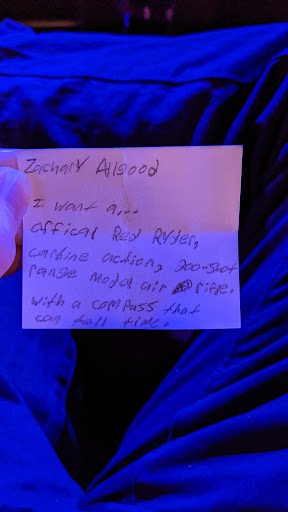 Zachary Allgood
I want a...
Offical Red Ryder,
carbine action, 200-shot
range modal air rifle.
with a compass that
can tell time.